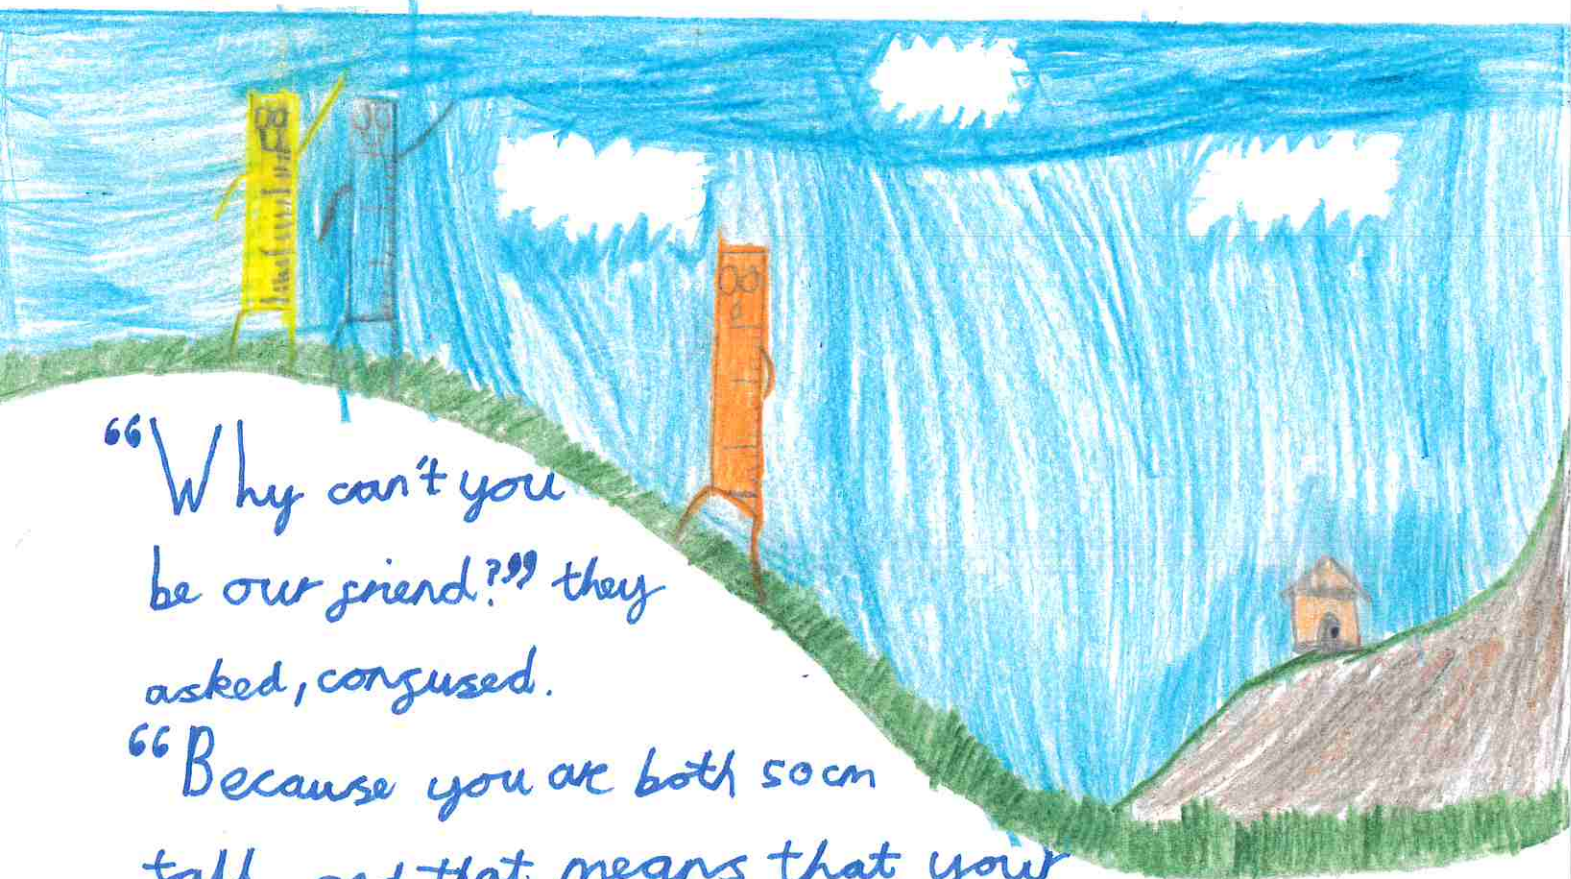 “Why can't you
be our friend?” they
asked, confused.
“Because you are both 50cm
tall, and that means that your